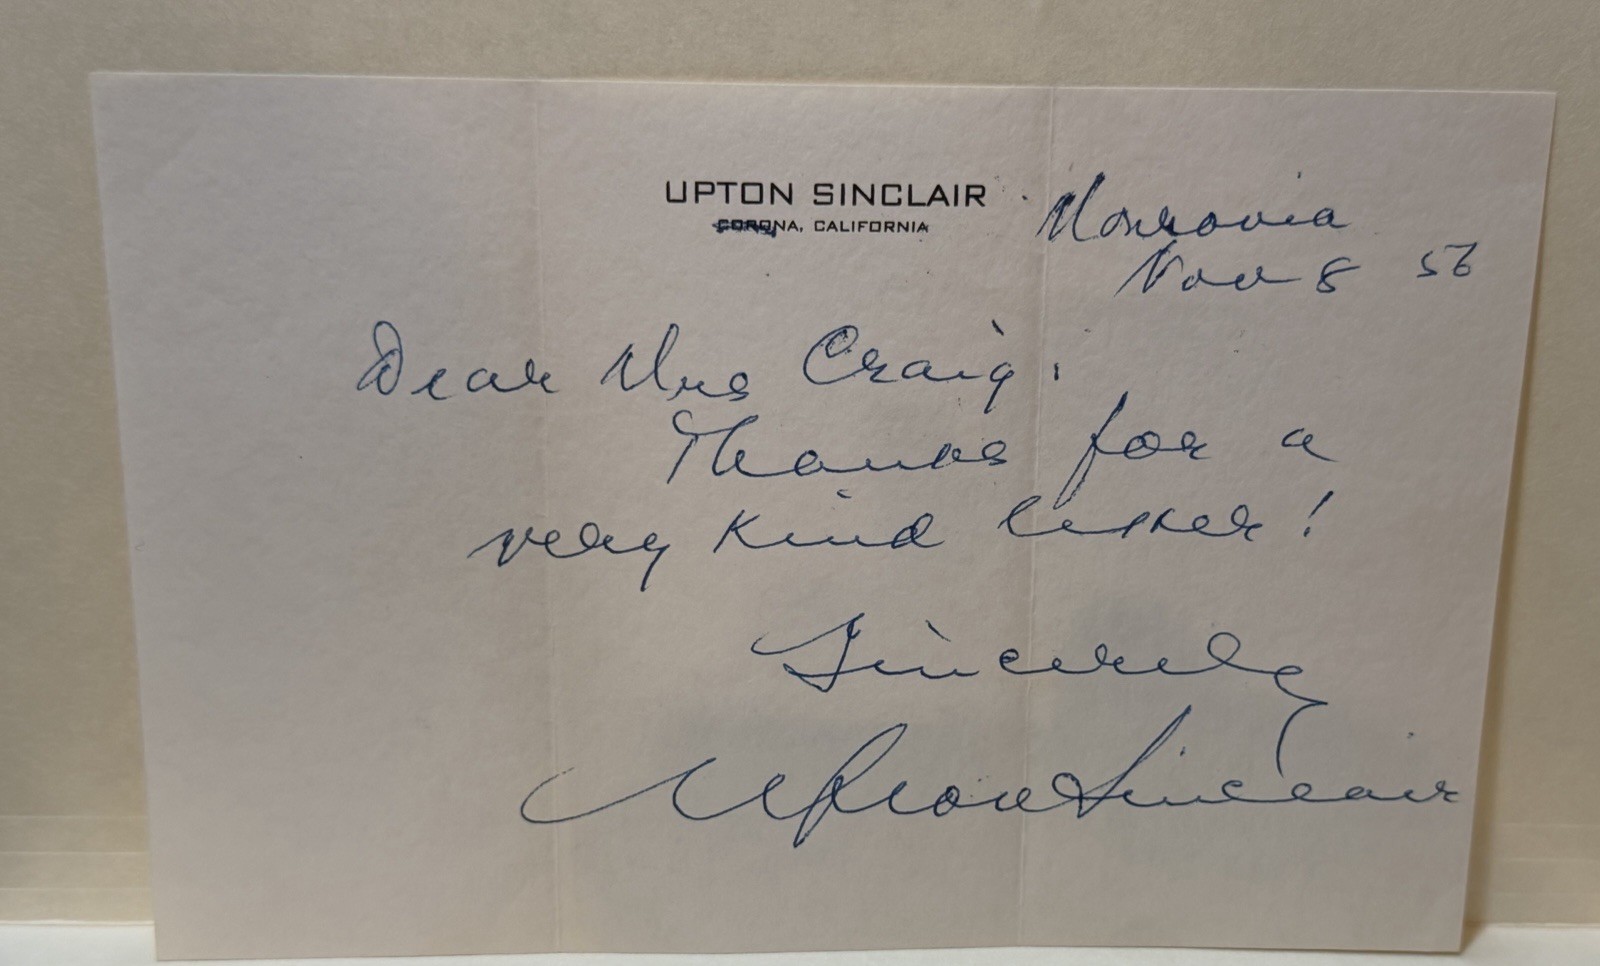 UPTON SINCLAIR
CORONA, CALIFORNIA
Monrovia
Nov 8 56
Dear Mrs Craig:
Thanks for a
very kind letter!
Sincerely
Upton Sinclair